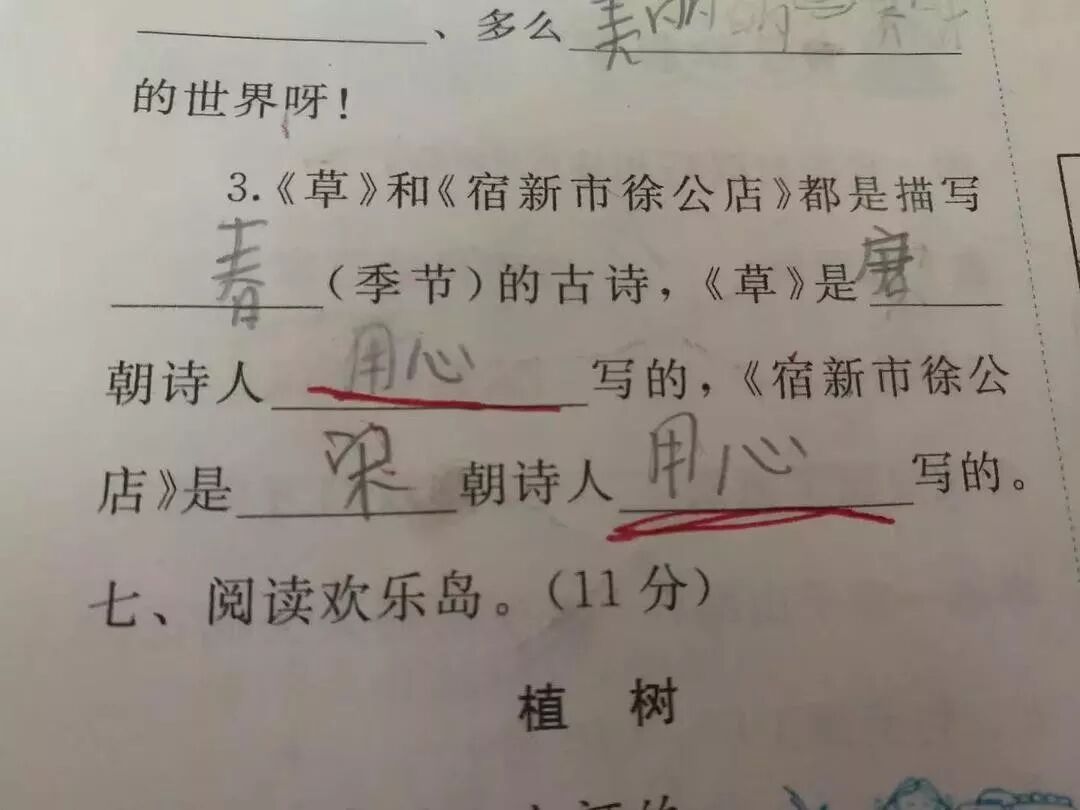 、多么美丽的
的世界呀！
3.《草》和《宿新市徐公店》都是描写
春（季节）的古诗，《草》是唐
朝诗人用心写的，《宿新市徐公
店》是梁朝诗人用心写的。
七、阅读欢乐岛。（11分）
植 树